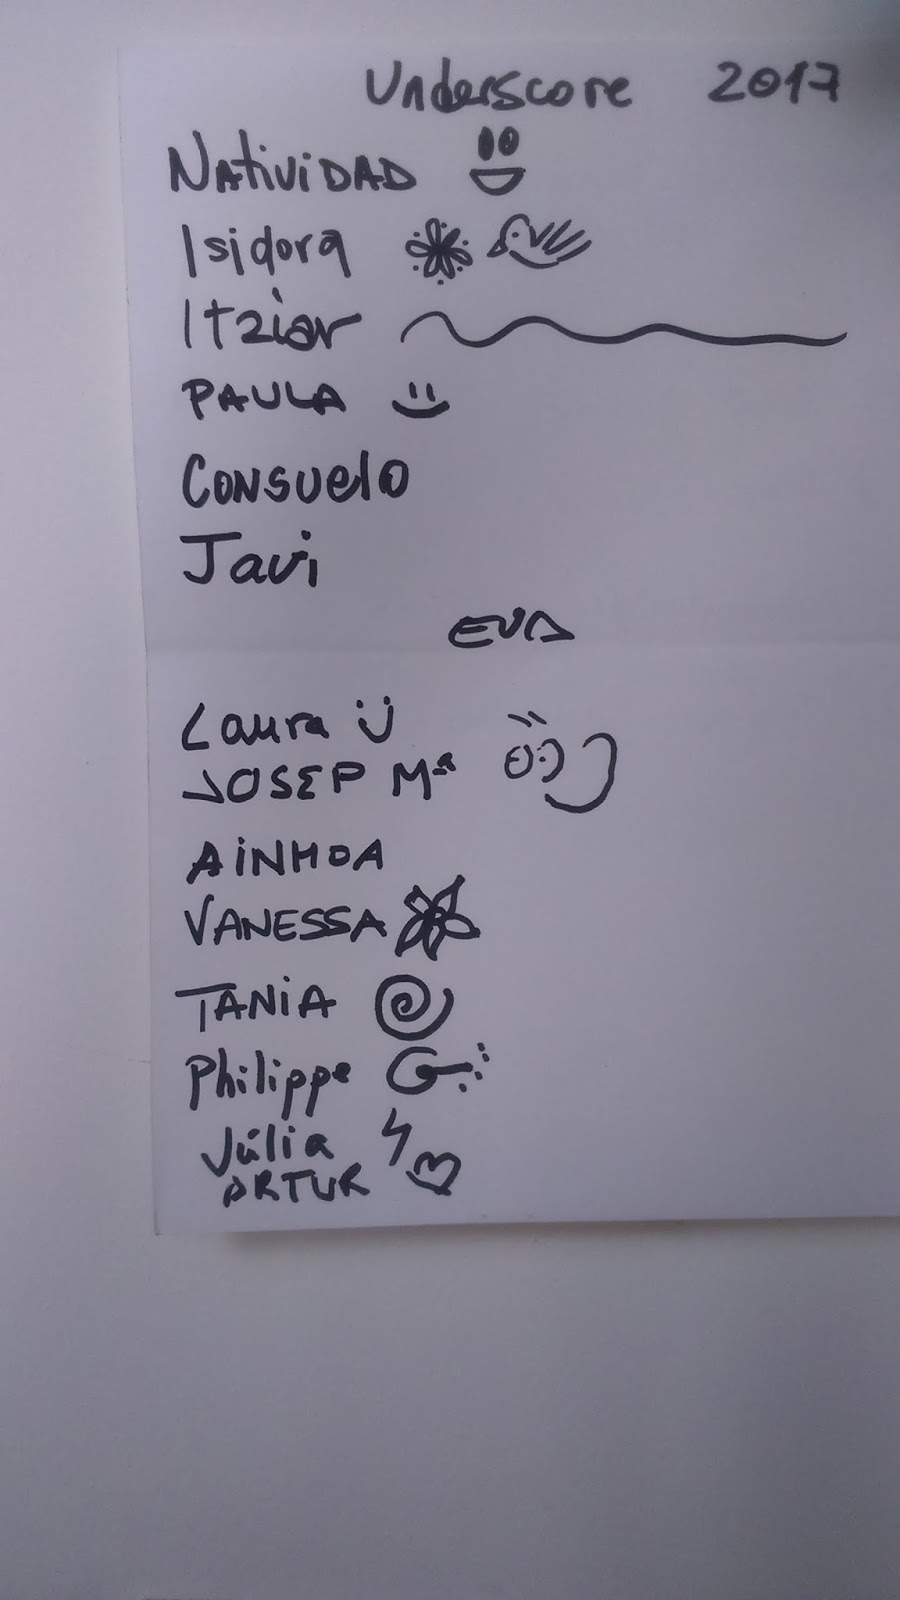 Underscore 2017
Natividad
Isidora
Itziar
PAULA
Consuelo
Javi
EVA
Laura
JOSEP Mª
AINHOA
VANESSA
TANiA
Philippe
Júlia
ARTUR